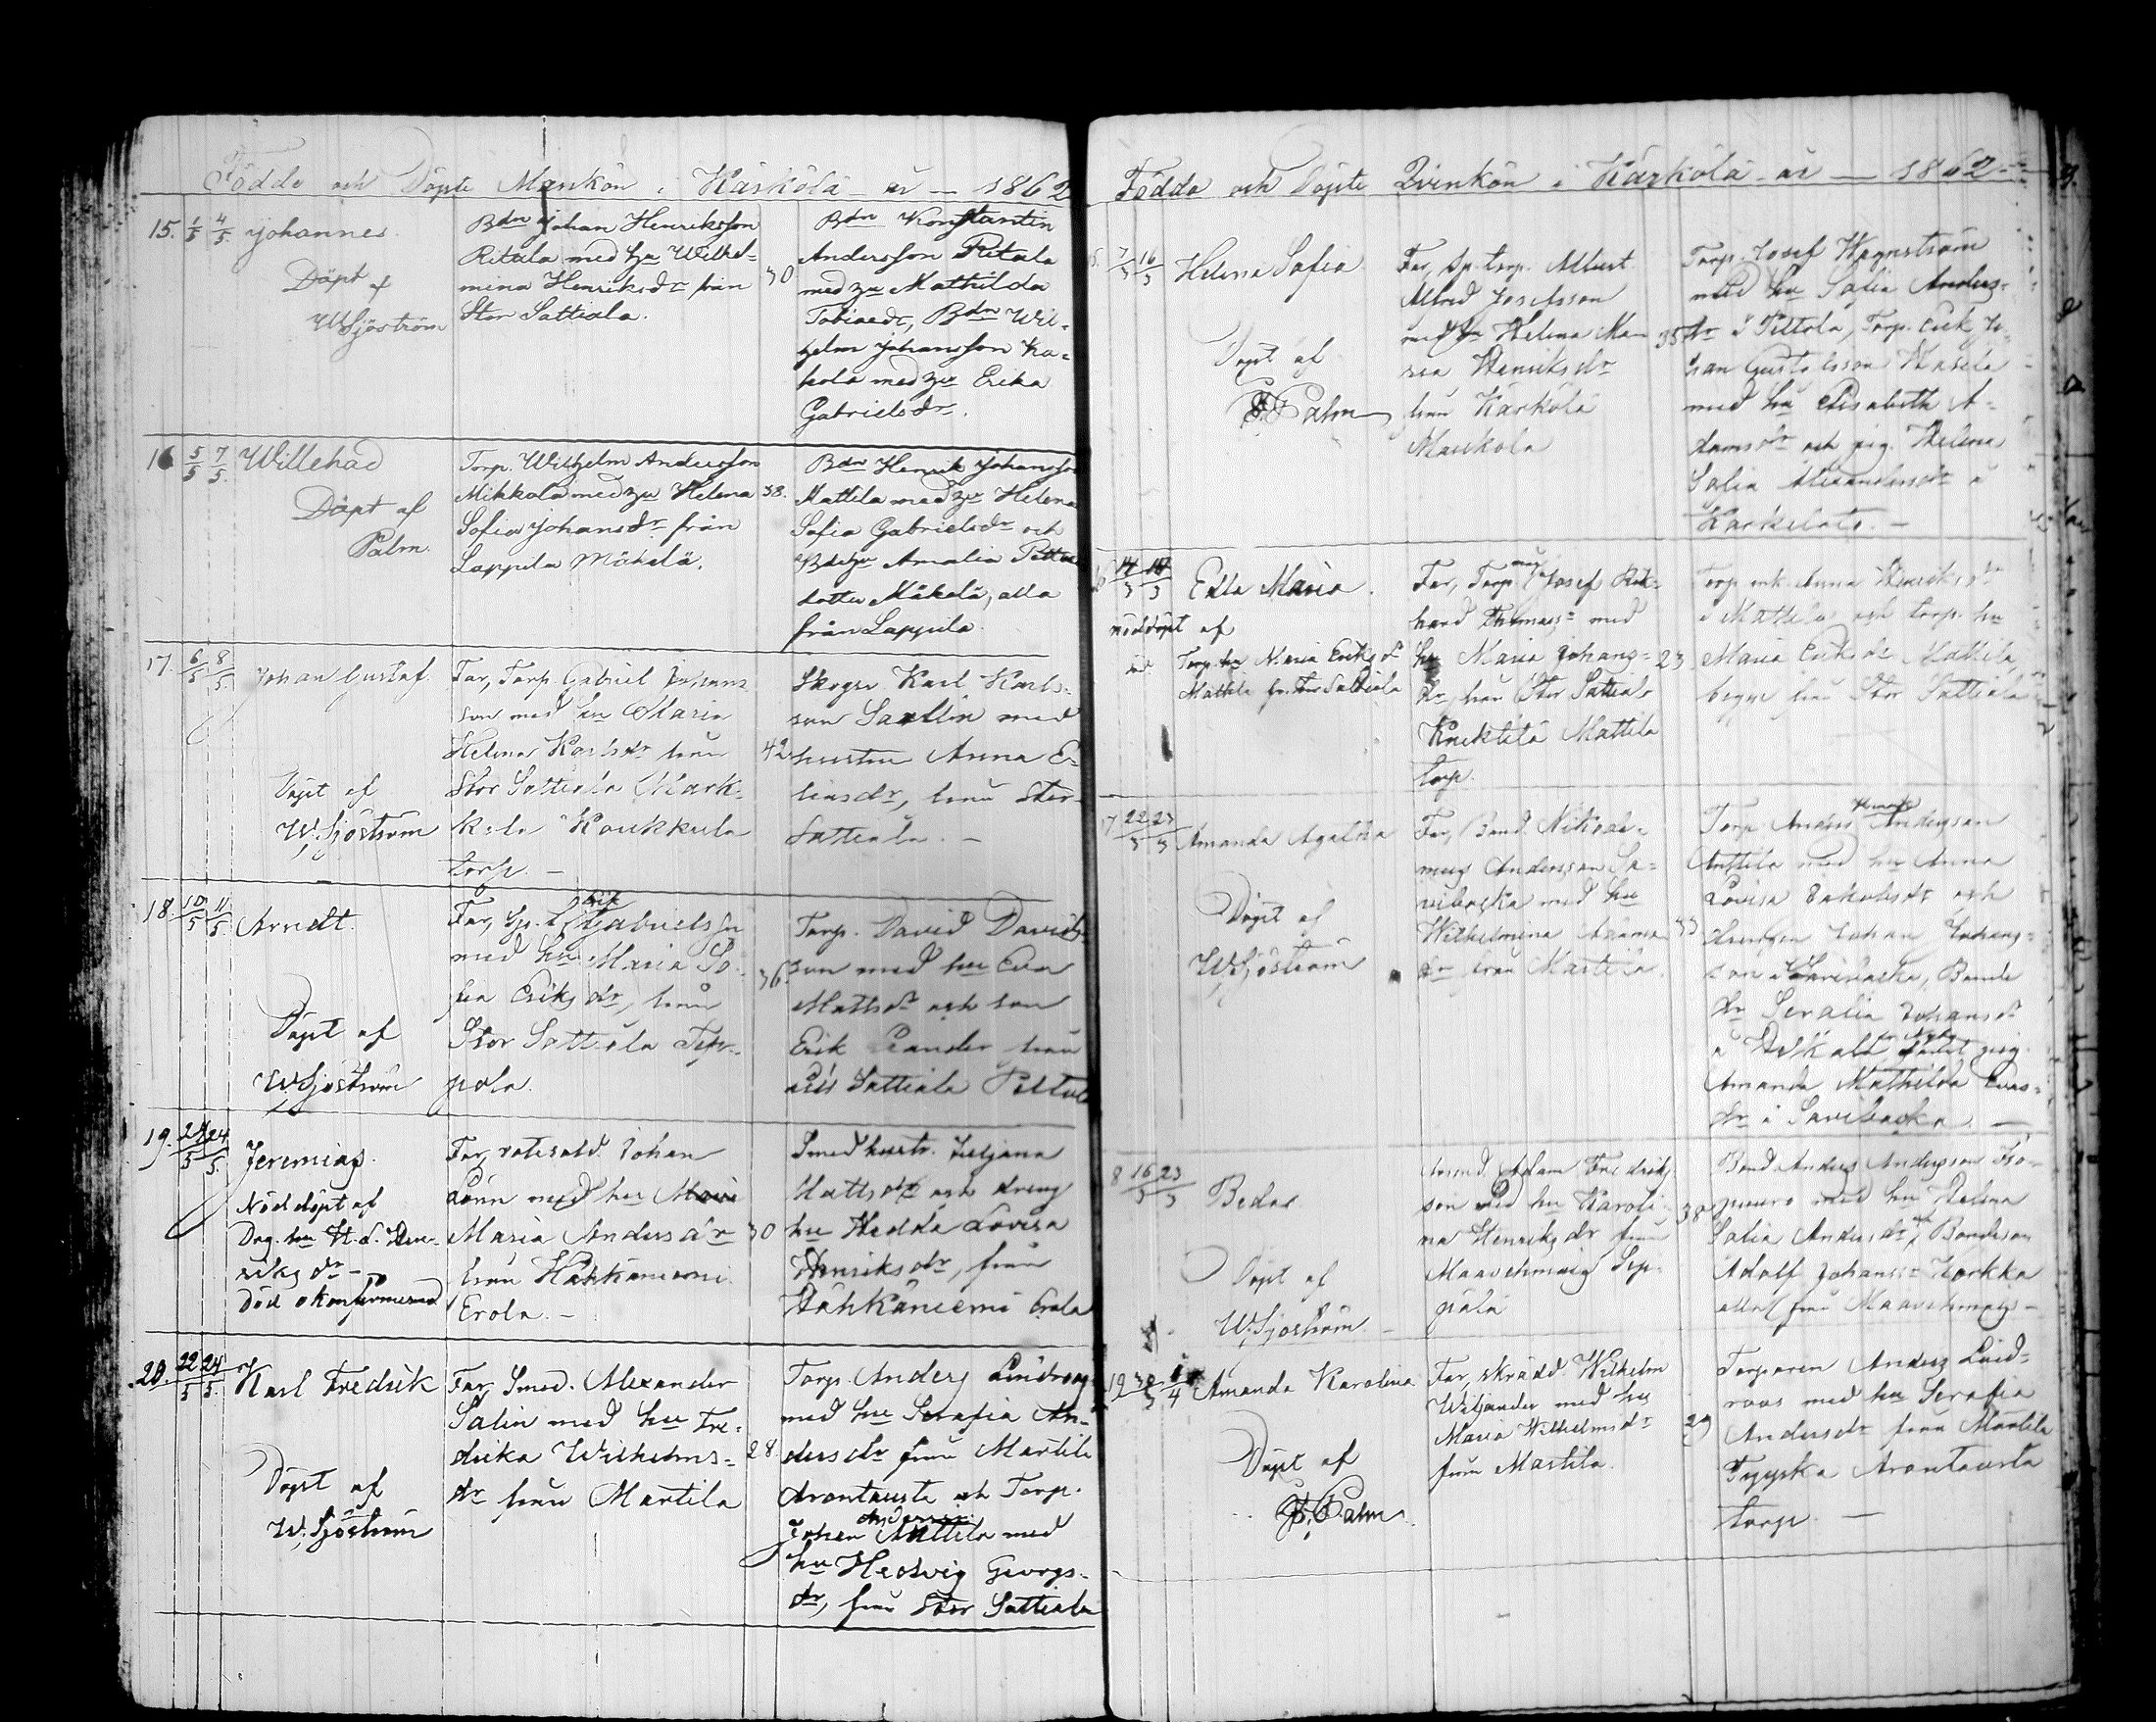 Födde och Döpte Mankön i Kärkölä år — 1862
15. 1/5 4/5. Johannes.
Döpt af
W Sjöström
Bdn Johan Henriksson
Ritala med hu Wilhel-
mina Henriksdr från
Stor Sattiala.
30
Bdn Konstantin
Andersson Ritala
med hu Mathilda
Tobiaedr, Bdn Wil-
helm Johansson
med hu Erika
Gabrielsdr.
16 5/5 7/5. Willehad
Döpt af
Palm.
Torp. Wilhelm Andersson
Mikkola med hu Helena
Sofia Johansdr från
Lappila Mäkelä.
38.
Bdn Henrik Johansson
Mattila med hu Helena
Sofia Gabrielsdr och
Amalia
dotter Mäkelä, alla
från Lappila
17. 6/5 8/5. Johan Gustaf.
Döpt af
W. Sjöström
Far, Torp. Gabriel Johans
son med hu Maria
Helena Karlsdr från
Stor Sattiala Mark-
kola Koukkula
torp. —
42
Karl Karls-
son med
hustru Anna E-
liasdr, från Stor-
Sattiala. —
18. 10/5 11/5. Arndt.
Döpt af
W. Sjöström
Far, Sp. t. Erik Gabrielsson
med hu Maria So-
fia Eriksdr, från
Stor Sattiala Tep-
pola.
36.
Torp. David Davids-
son med hu Eva
Mattsdr och son
Erik från
Sattiala Pittula
19. 24/5 24/5. Jeremias.
Nöddöpt af
Drg. hu H. L. Hen-
riksdr —
Död okonfirmerad
Far, rotesold. Johan
Lönn med hu
Maria Andersdr
från Hähkäniemi
Erola. —
30
Smedhustr. Juljana
Mattsdr och dreng
hu Hedda Lovisa
Henriksdr, från
Hähkäniemi Erola
20. 22/5 24/5. Karl Fredrik
Döpt af
W. Sjöström
Far, Smed. Alexander
Salin med hu Fre-
drika Wilhelms-
dr från Martila
28.
Torp. Anders Lindroos
med hu Serafia An-
dersdr från Martila
Arontausta och Torp.
Johan Andersson Anttila med
hu Hedvig Georgs-
dr, från Stor Sattiala
Födda och Döpte Qvinkön i Kärkölä år — 1862.
7/3 16/3 Helena Sofia
Döpt af
F. Palm
Far, Sp. torp. Albert
Alfred Josefsson
med hu Helena Ma-
ria Henriksdr
från Kärkölä
Maukola
35
Torp. Josef Wagnström
med hu Sofia Anders-
dr i Pittola, Torp. Erik Jo-
han Gustafsson
med hu Elisabeth A-
damsdr och pig. Helena
Sofia Alexandersdr i
14/3 Edla Maria.
nöddöpt af
Torp. hu Maria Eriksdr
Mattila fr. Stor Sattiala
Far, Torp. måg Josef Rik-
hard Thomass. med
hu Maria Johans-
dr, från Stor Sattiala
Knektilä Mattila
torp.
23
Torp. enk. Anna Henriksdr
i Mattila och torp. hu
Maria Eriksdr Mattila,
begge från Stor Sattiala
17 22/3 23/3 Amanda Agatha
Döpt af
W. Sjöström
Far, Bond. Nikode-
mus Andersson Sa-
vibacka med hu
Wilhelmina Adams-
dr från Martila.
33
Torp. Anders Andersson
Anttila med hu Anna
Lovisa Jakobsdr och
drengen Johan Johans-
son i Savibacka, Bonde
dr Serafia Johansdr
i samt pig.
Amanda Mathilda Evas-
dr i Savibacka. —
8 16/3 23/3 Beda
Döpt af
W. Sjöström.
Adam Fredriks-
son med hu Karoli-
na Henriksdr från
Maavehmais Sep-
pälä
38
Bond. Anders Andersson Iso-
puuro med hu Helena
Sofia Andersdr, Bondeson
Adolf Johanss. Korkka
alla från Maavehmais —
19 30/3 /4 Amanda Karolina
Döpt af
F. Palm.
Far, skrädd. Wilhelm
Wiljander med hu
Maria Wilhelmsdr
från Martila.
29
Torparen Anders Lind-
roos med hu Serafia
Andersdr från Martila
Tyyskä Arontausta
torp. —